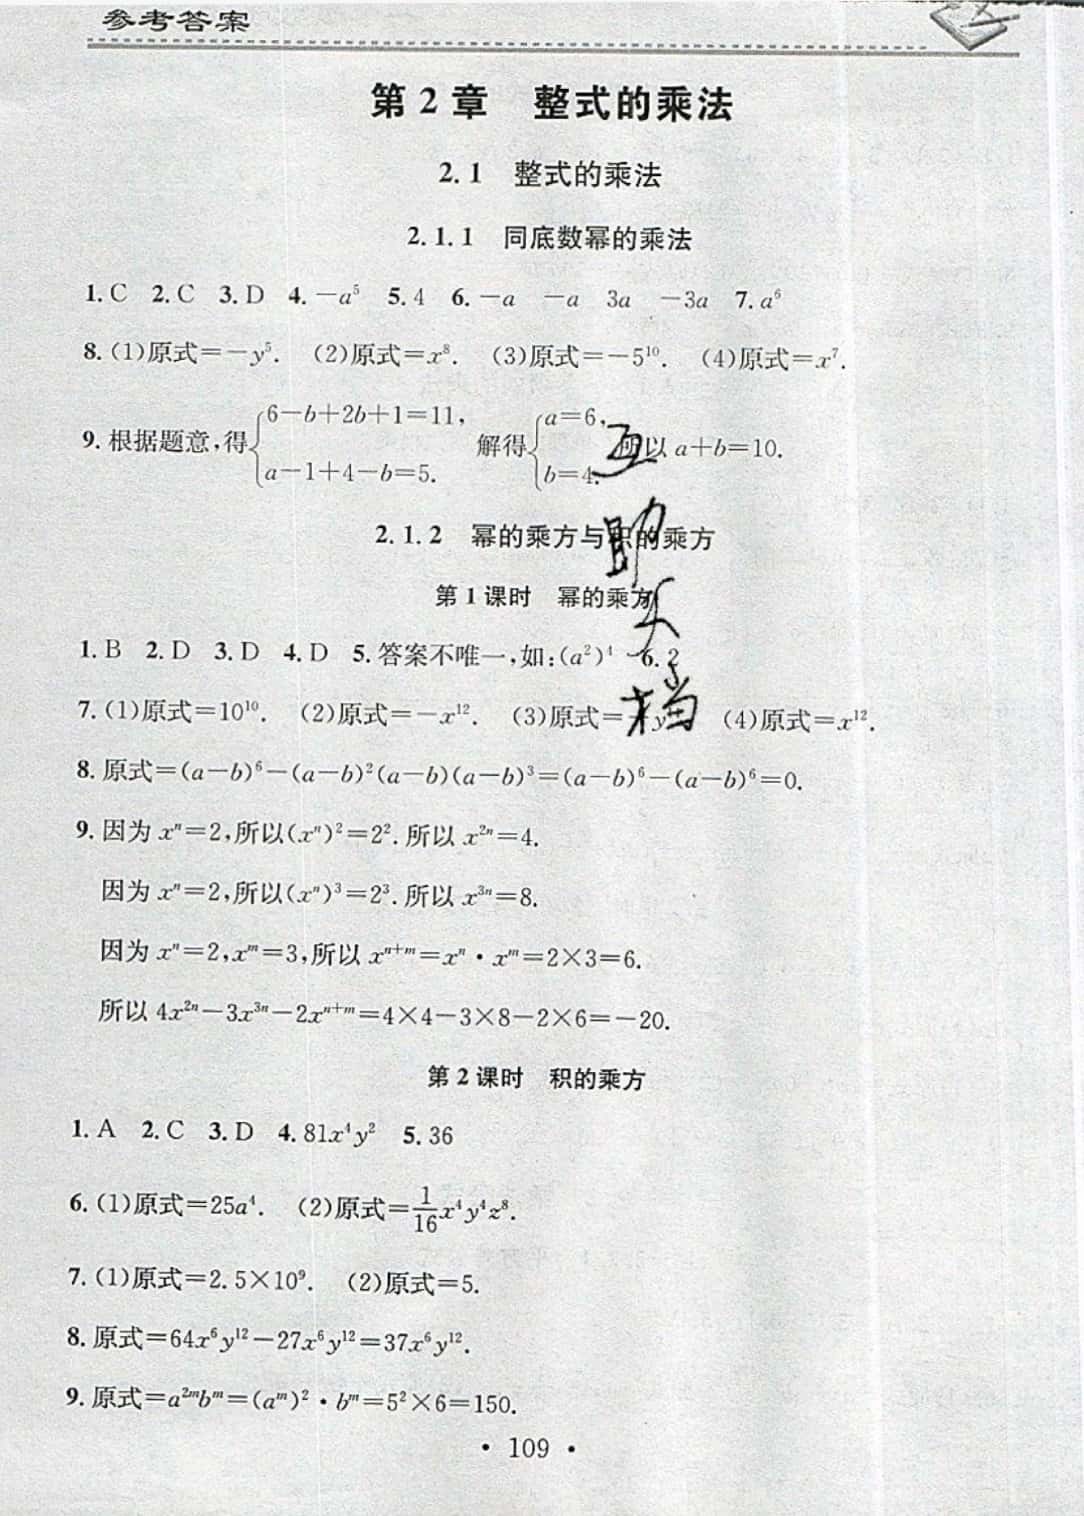 参考答案
第2章 整式的乘法
2.1 整式的乘法
2.1.1 同底数幂的乘法
1. C 2. C 3. D 4. －a⁵ 5. 4 6. －a －a 3a －3a 7. a⁶
8. (1)原式＝－y⁵. (2)原式＝x⁸. (3)原式＝－5¹⁰. (4)原式＝x⁷.
9. 根据题意,得{6－b＋2b＋1＝11, a－1＋4－b＝5. 解得{a＝6, b＝4. 所以 a＋b＝10.
2.1.2 幂的乘方与积的乘方
第1课时 幂的乘方
1. B 2. D 3. D 4. D 5. 答案不唯一,如:(a²)⁴ 6. 2
7. (1)原式＝10¹⁰. (2)原式＝－x¹². (3)原式＝ y (4)原式＝x¹².
8. 原式＝(a－b)⁶－(a－b)²(a－b)(a－b)³＝(a－b)⁶－(a－b)⁶＝0.
9. 因为 xⁿ＝2,所以(xⁿ)²＝2².所以 x²ⁿ＝4.
因为 xⁿ＝2,所以(xⁿ)³＝2³.所以 x³ⁿ＝8.
因为 xⁿ＝2,xᵐ＝3,所以 xⁿ⁺ᵐ＝xⁿ·xᵐ＝2×3＝6.
所以 4x²ⁿ－3x³ⁿ－2xⁿ⁺ᵐ＝4×4－3×8－2×6＝－20.
第2课时 积的乘方
1. A 2. C 3. D 4. 81x⁴y² 5. 36
6. (1)原式＝25a⁴. (2)原式＝1/16x⁴y⁴z⁸.
7. (1)原式＝2.5×10⁹. (2)原式＝5.
8. 原式＝64x⁶y¹²－27x⁶y¹²＝37x⁶y¹².
9. 原式＝a²ᵐbᵐ＝(aᵐ)²·bᵐ＝5²×6＝150.
· 109 ·